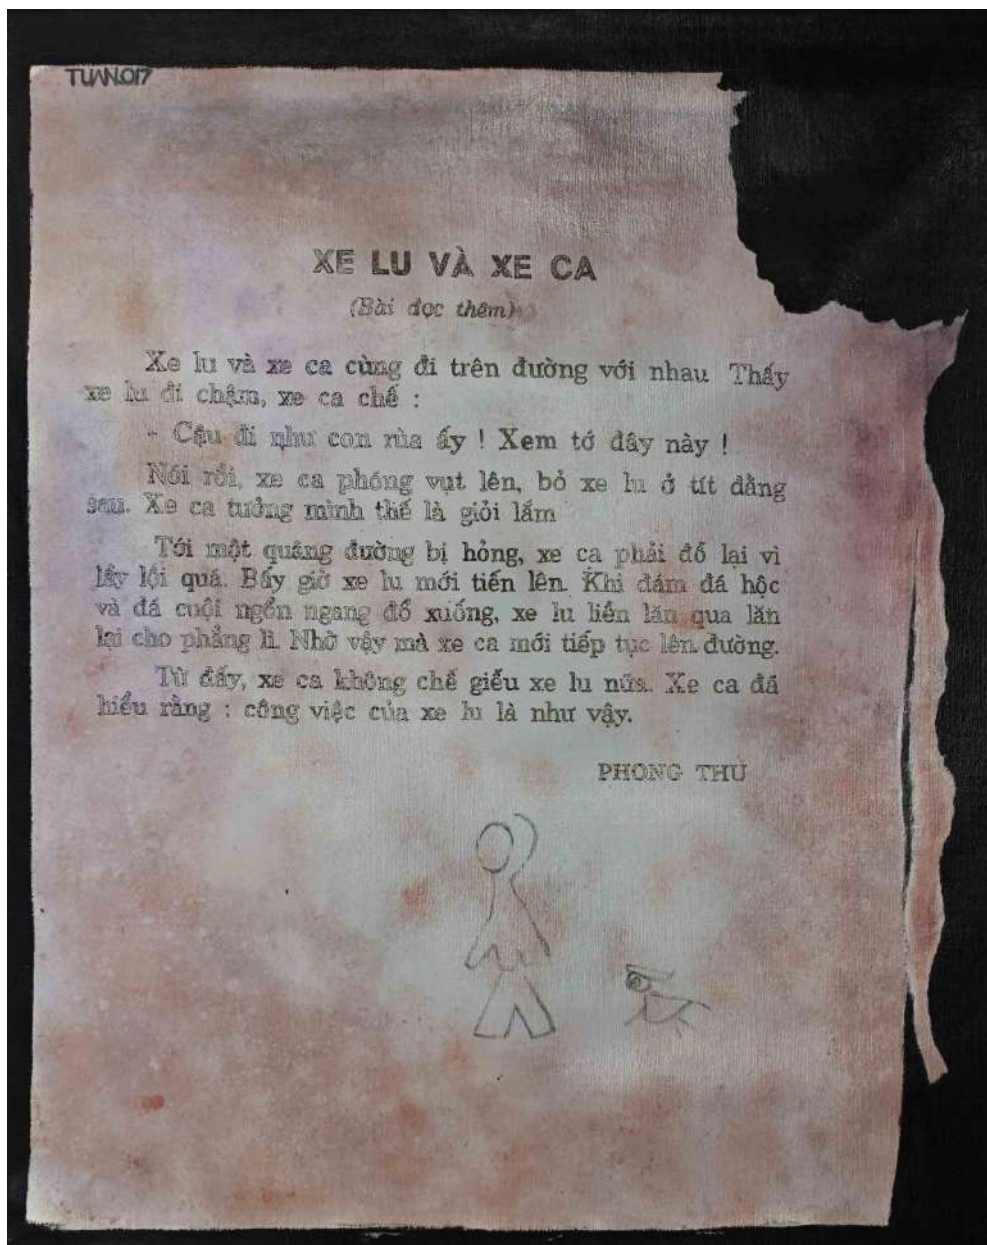 TUAN.017
XE LU VÀ XE CA
(Bài đọc thêm)
Xe lu và xe ca cùng đi trên đường với nhau Thấy
xe lu đi chậm, xe ca chế :
- Cậu đi như con rùa ấy ! Xem tớ đây này !
Nói rồi, xe ca phóng vụt lên, bỏ xe lu ở tít đằng
sau. Xe ca tưởng mình thế là giỏi lắm
Tới một quãng đường bị hỏng, xe ca phải đỗ lại vì
lầy lội quá. Bấy giờ xe lu mới tiến lên. Khi đám đá hộc
và đá cuội ngổn ngang đổ xuống, xe lu liền lăn qua lăn
lại cho phẳng lì. Nhờ vậy mà xe ca mới tiếp tục lên đường.
Từ đấy, xe ca không chế giễu xe lu nữa. Xe ca đã
hiểu rằng : công việc của xe lu là như vậy.
PHONG THU